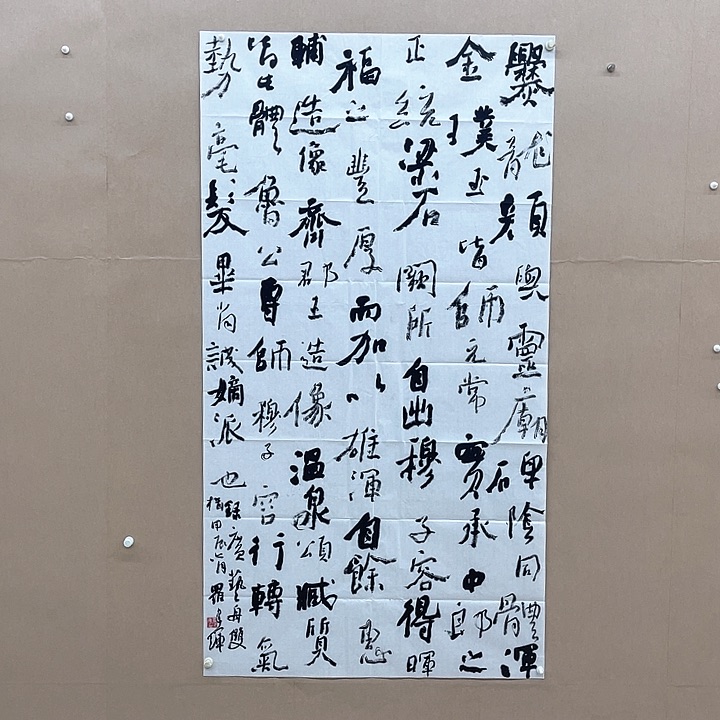 爨龍顏與靈廟碑陰同體渾
金璞玉皆師元常實承中郎之
正統梁石闕所自出穆子容得暉
福之豐厚而加以雄渾自餘惠
輔造像齊郡王造像溫泉頌臧質
皆此體魯公專師穆子容行轉氣
勢毫髮畢肖誠嫡派也
錄廣藝舟雙
楫甲辰